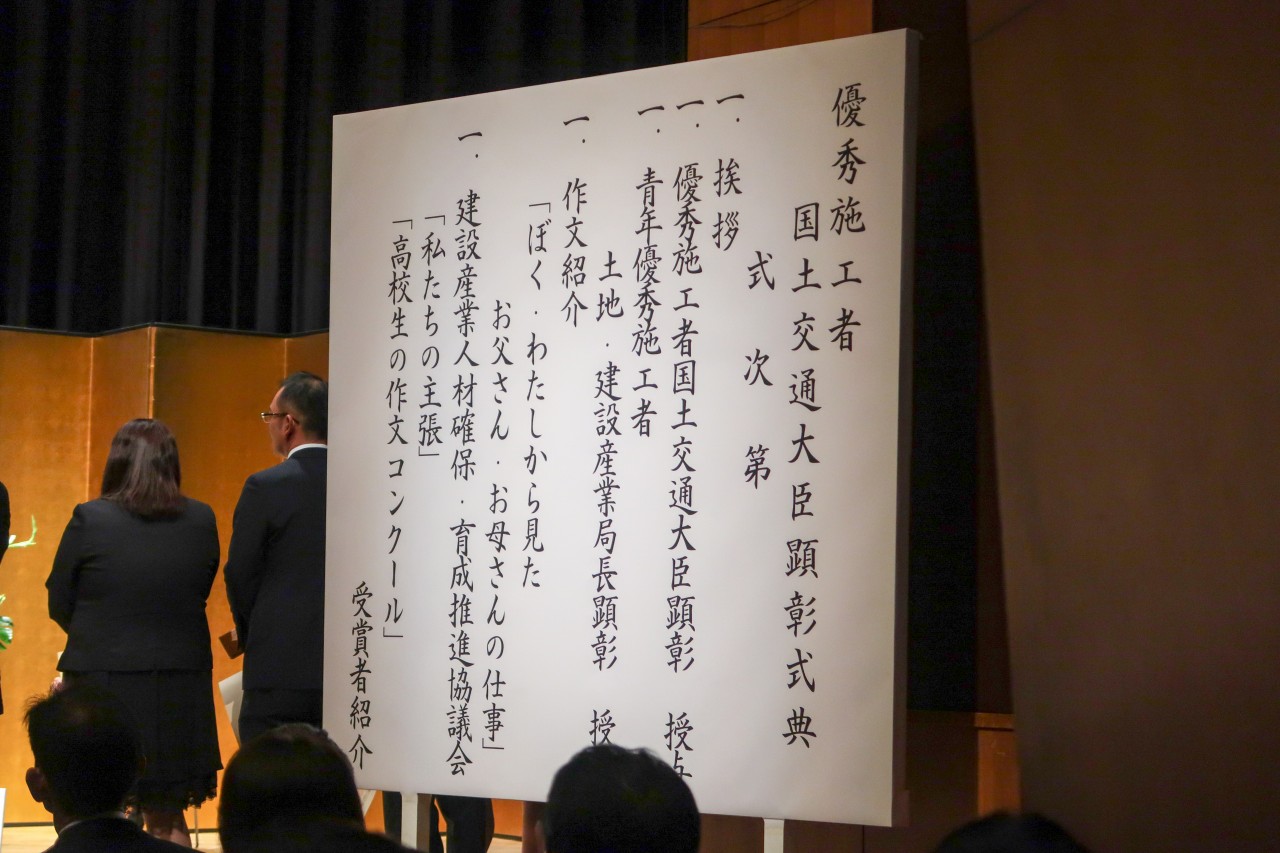 優秀施工者
国土交通大臣顕彰式典
式次第
一．挨拶
一．優秀施工者国土交通大臣顕彰 授与
一．青年優秀施工者
土地・建設産業局長顕彰 授
一．作文紹介
「ぼく・わたしから見た
お父さん・お母さんの仕事」
一．建設産業人材確保・育成推進協議会
「私たちの主張」
「高校生の作文コンクール」
受賞者紹介